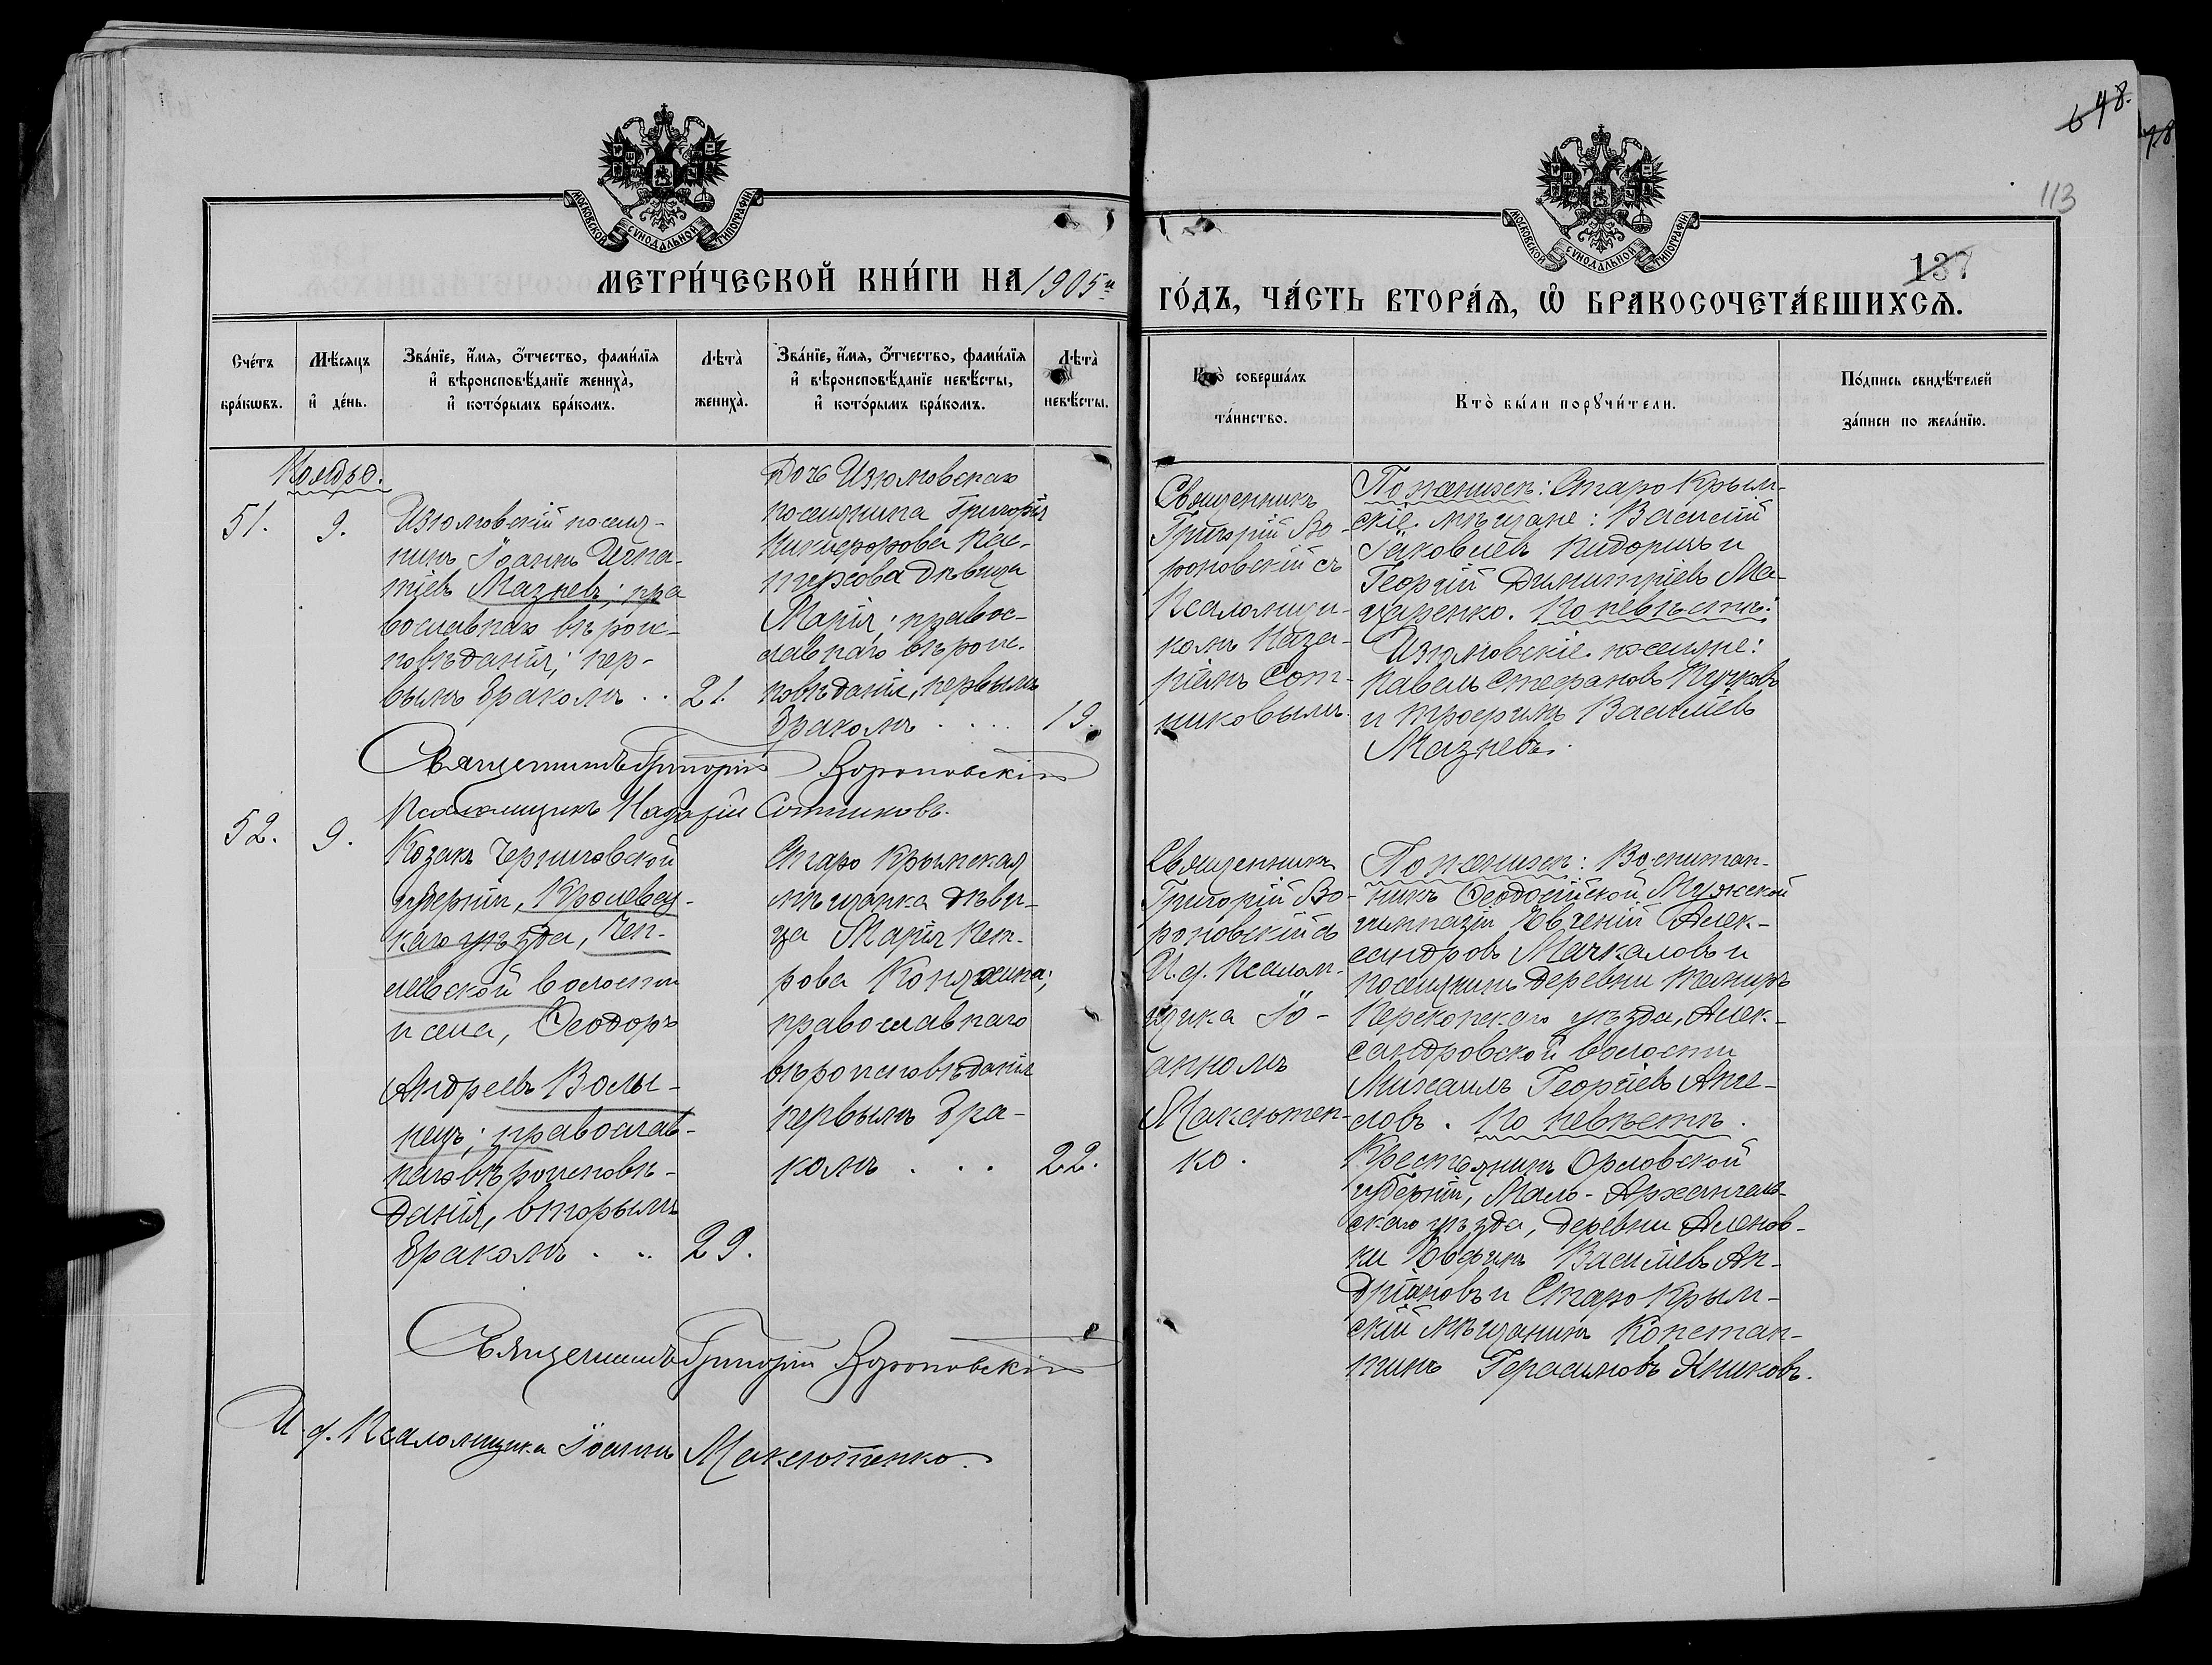 648.
78
113
МОСКОВСКОЙ СѴНОДАЛЬНОЙ ТИПОГРАФІИ
МОСКОВСКОЙ СѴНОДАЛЬНОЙ ТИПОГРАФІИ
137
МЕТРИ́ЧЕСКОЙ КНИ́ГИ НА 1905й
ГО́ДЪ, ЧА́СТЬ ВТОРА́Ѧ, Ѽ БРАКОСОЧЕТА́ВШИХСѦ.
Сче́тъ бра́кѡвъ.
Мѣ́сѧцъ и҆ де́нь.
Зва́нїе, и҆́мѧ, ѻ҆́тчество, фами́лїѧ
и҆ вѣроисповѣ́данїе жениха̀,
и҆ кото́рымъ бра́комъ.
Лѣта̀ жениха̀.
Зва́нїе, и҆́мѧ, ѻ҆́тчество, фами́лїѧ
и҆ вѣроисповѣ́данїе невѣ́сты,
и҆ кото́рымъ бра́комъ.
Лѣта̀ невѣ́сты.
Кто̀ соверша́лъ
та́инство.
Кто̀ бы́ли порꙋчи́тели.
По́дпись свидѣ́телей
за́писи по жела́нїю.
Ноябрь.
51.
9.
Изюмовскій поселя-
нинъ Іоаннъ Игна-
тіевъ Мазневъ; пра
вославнаго вѣроис-
повѣданія; пер-
вымъ бракомъ . . 21.
Дочь Изюмовскаго
поселянина Григорія
Никифорова Нес-
терова дѣвица
Марія; правос-
лавнаго вѣроис-
повѣданія, первымъ
бракомъ . . . . 19.
Священникъ
Григорій Во-
роновскій съ
Псаломщи-
комъ Наза-
ріемъ Сот-
никовымъ.
По женихѣ: Старо Крым-
скіе мѣщане: Василій
Іаковлевъ Сидоричъ и
Георгій Димитріевъ Ма-
царенко. По невѣстѣ:
Изюмовскіе поселяне:
Павелъ Стефановъ Пучковъ
и Трофимъ Васильевъ
Мазневъ.
Священникъ Григорій Вороновскій
Псаломщикъ Назарій Сотниковъ.
52.
9.
Козакъ Черниговской
губерніи, Кролевец-
каго уѣзда,
волости
и села, Ѳеодоръ
Андреевъ Волы-
нецъ; православ-
наго вѣроисповѣ-
данія, вторымъ
бракомъ . .. 29.
Старо Крымская
мѣщанка дѣви-
ца Марія Пет-
рова
православнаго
вѣроисповѣданія
первымъ бра-
комъ . . . 22.
Священникъ
Григорій Во-
роновскій съ
И. д. Псалом-
щика Іо-
анномъ
Максютен-
ко.
По женихѣ: Воспитан-
никъ Ѳеодосійской Мужской
гимназіи Евгеній Алек-
сандровъ Мачкаловъ и
поселянинъ деревни
Перекопскаго уѣзда, Алек-
сандровской волости
Михаилъ Георгіевъ Анге-
ловъ. По невѣстѣ.
Крестьянинъ Орловской
губерніи, Мало-Архангель-
скаго уѣзда, деревни
Васильевъ Ан-
дріановъ и Старо Крым-
скій мѣщанинъ Констан-
тинъ Герасимовъ Аниковъ.
Священникъ Григорій Вороновскій
И. д. Псаломщика Іоаннъ Максютенко.